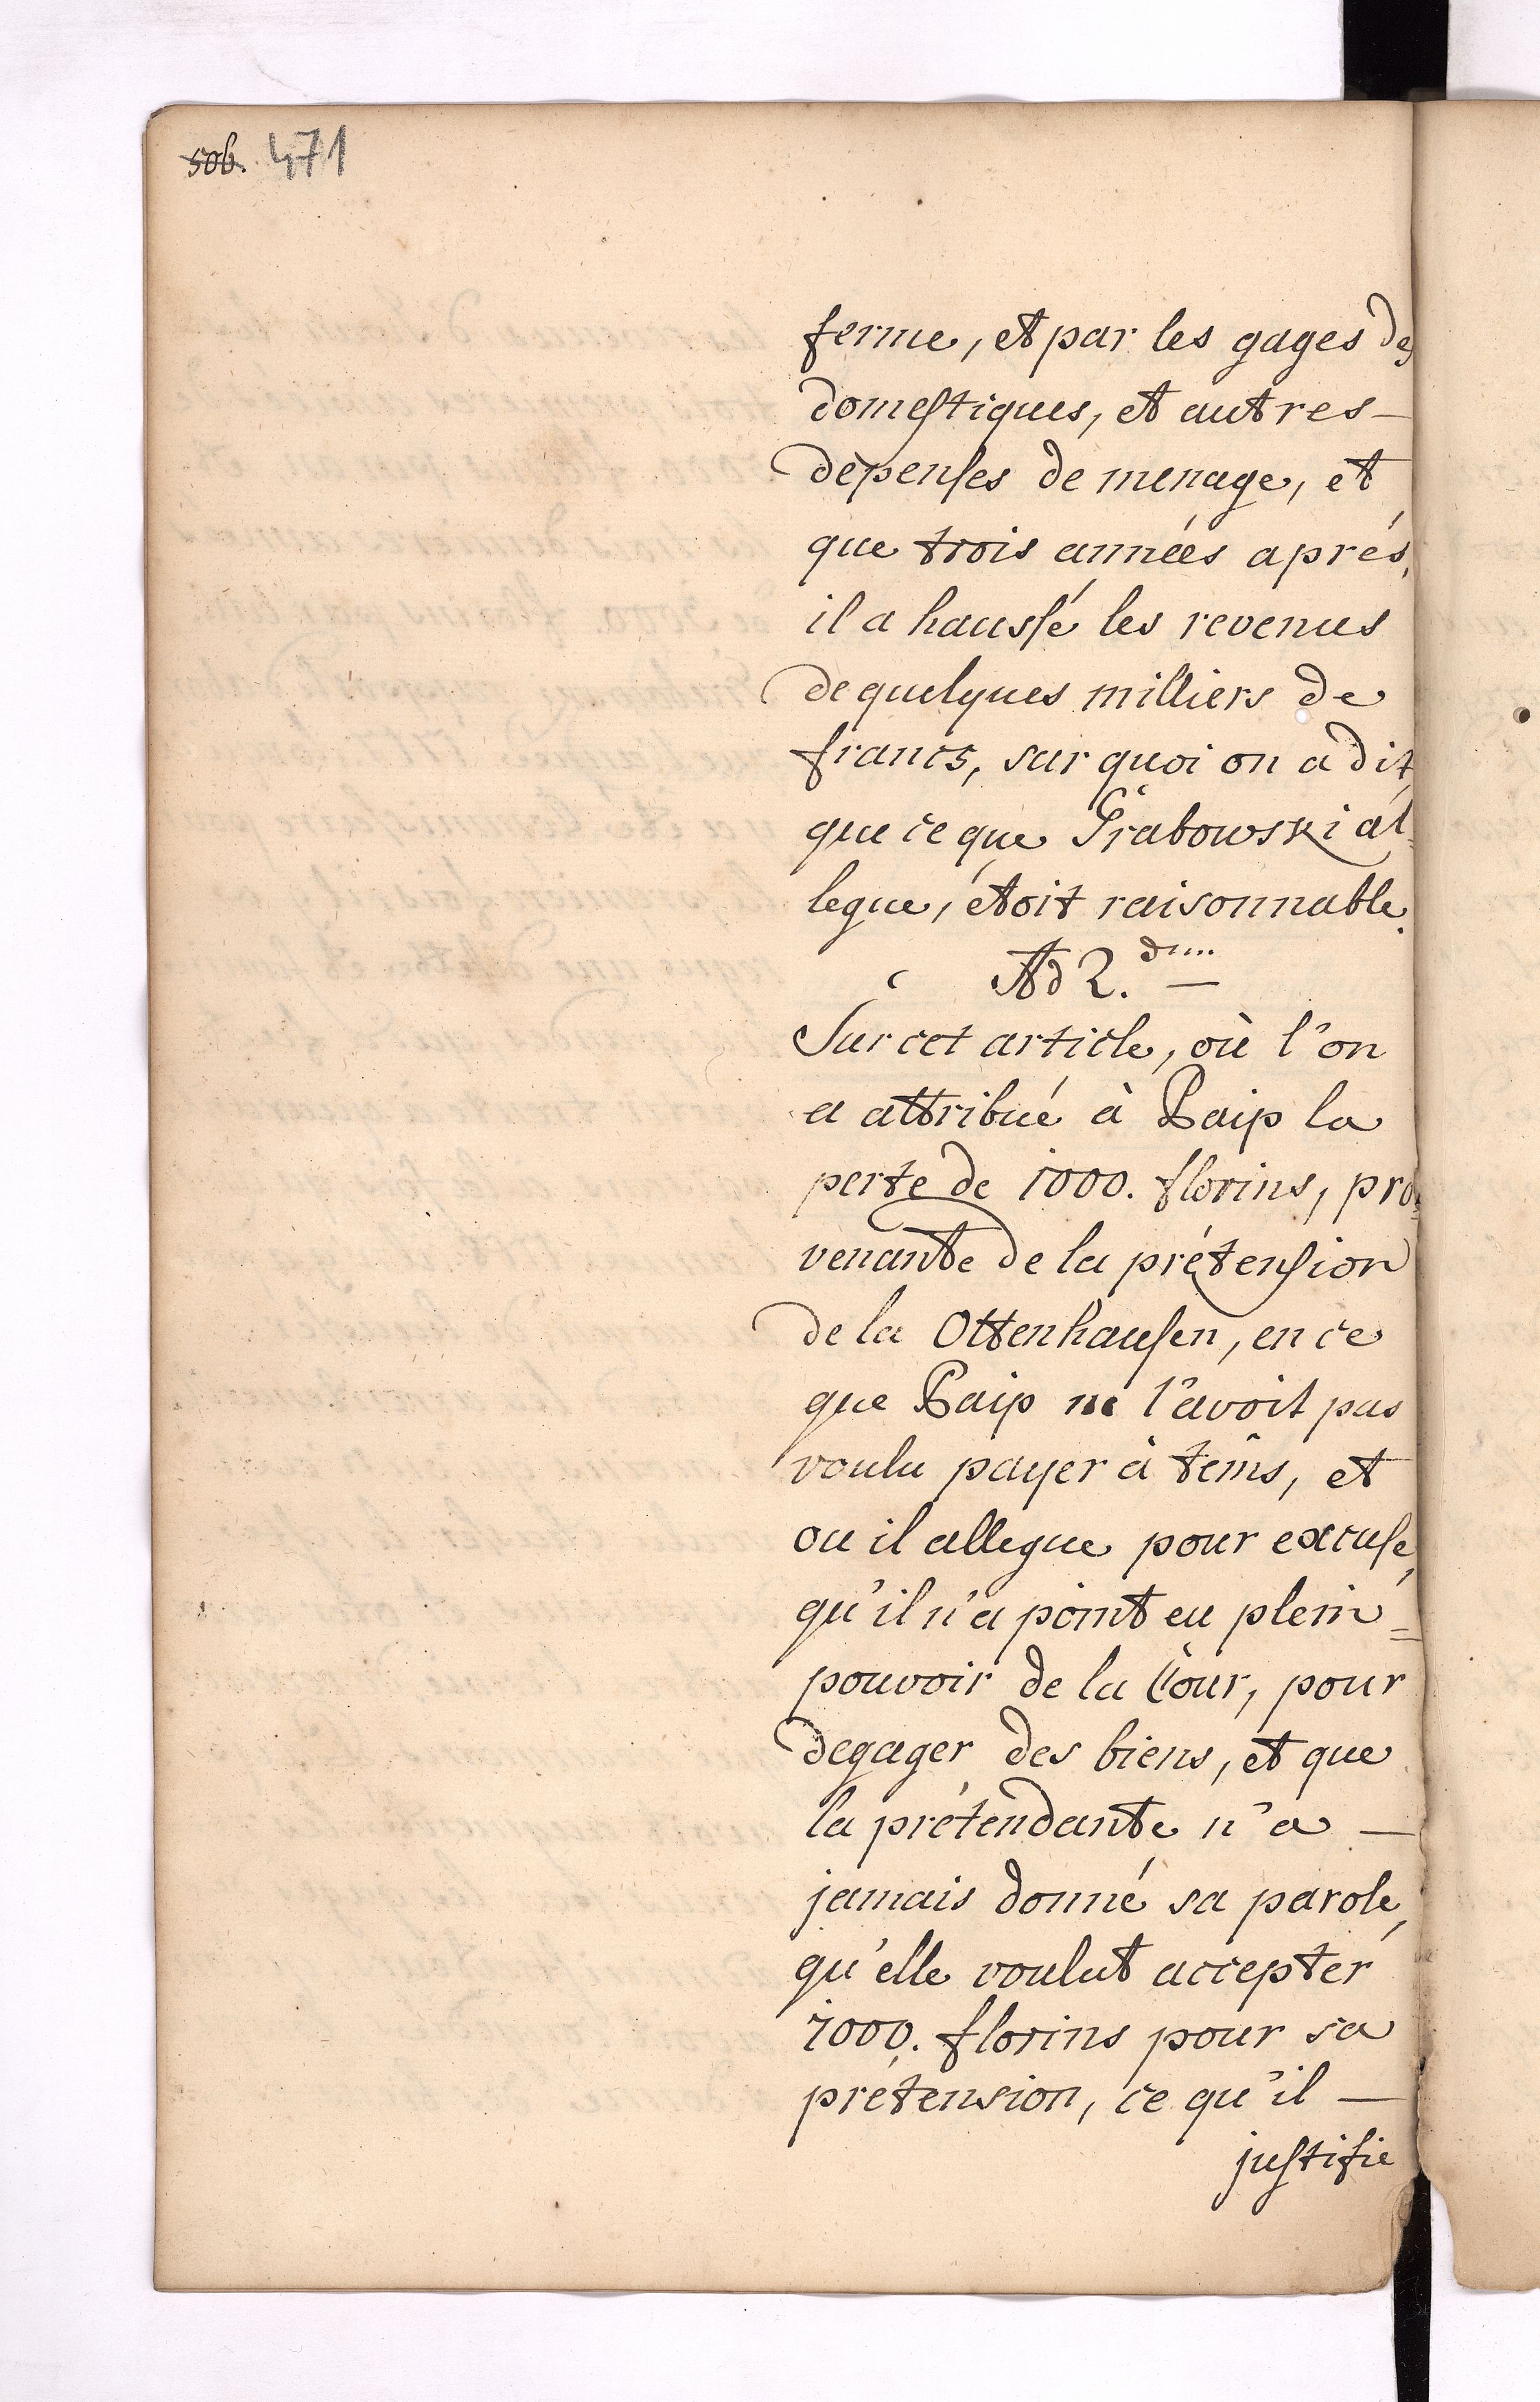 506. 471
ferme, et par les gages des
domeſtiques, et autres –
dépenſes de menage, et
que trois années aprés,
il a hausſé les revenus
de quelques milliers de
francs, sur quoi on a dit,
que ce que Grabowski al-
legue, étoit raisonnable.
Ad 2.dum
Sur cet article, où l'on
a attribué à Paip la
perte de 1000. florins, pro-
venante de la prétenſion
de la Ottenhauſen, en ce
que Paip ne l'avoit pas
voulu payer à tems, et
ou il allegue pour excuſe,
qu'il n'a point eu plein=
pouvoir de la Cour, pour
degager des biens, et que
la prétendante n'a –
jamais donné sa parole,
qu'elle voulut accepter
1000. florins pour sa
prétension, ce qu'il –
juſtifie